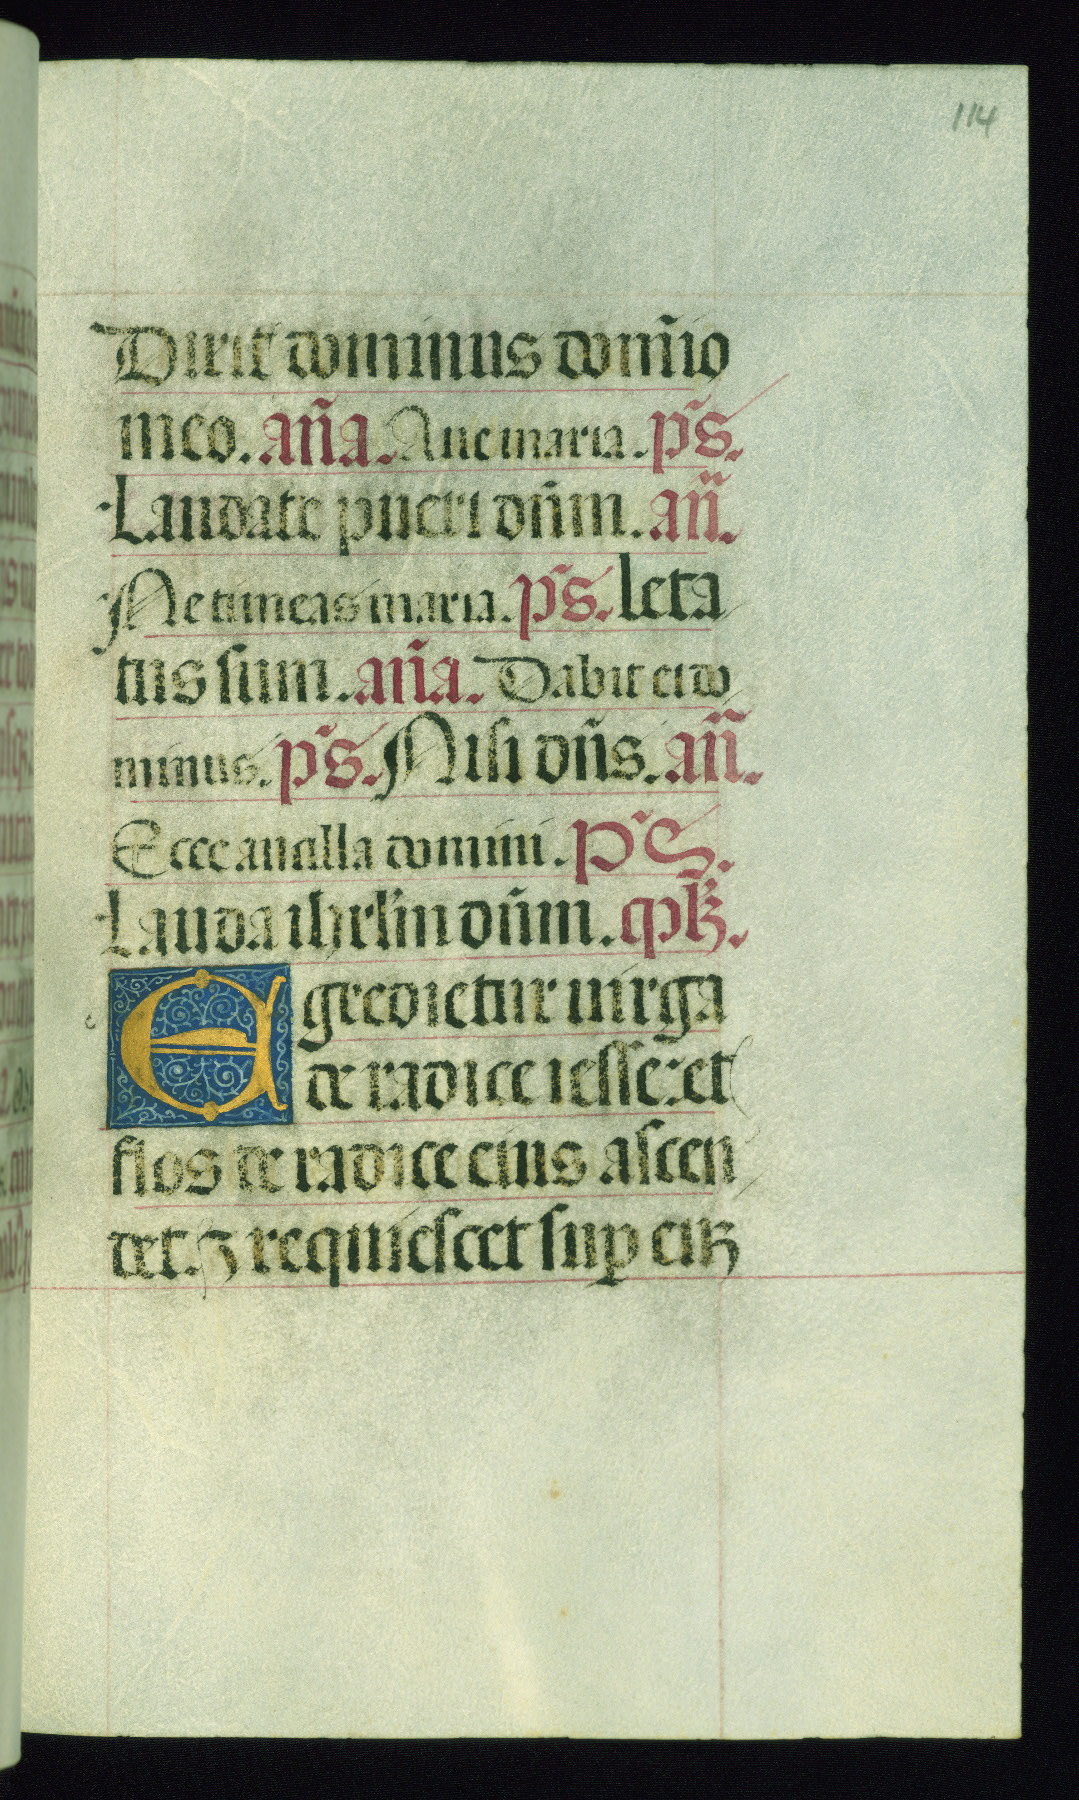 114
Dixit dominus domīo
meo. añа. Aue maria. p̄s.
Laudate pueri dn̄m. an̄.
Ne timeas maria. p̄s. leta
tus sum. an̄a. Dabit ei do
minus. p̄s. Nisi dn̄s. an̄.
Ecce ancilla domini. p̄s.
Lauda ihrl̄m dn̄m. cpĺꝫ.
Egredietur uirga
de radice iesse: et
flos de radice eius ascen
det. ⁊ requiescet suꝑ eiꝰ